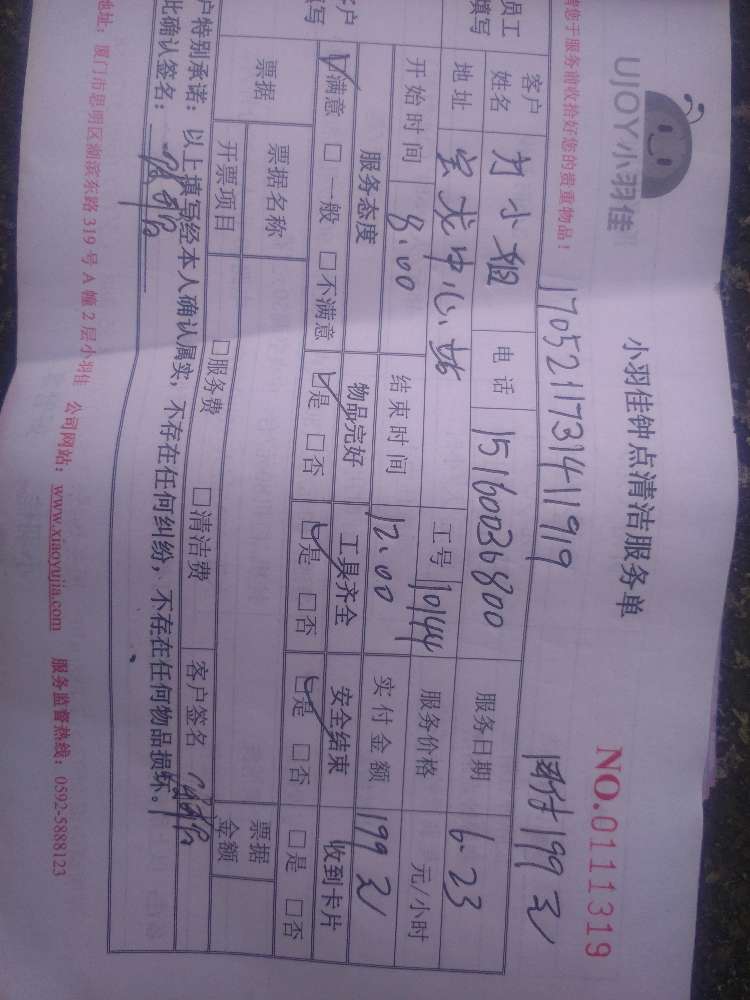 UJOY小羽佳
小羽佳钟点清洁服务单
NO.0111319
请您于服务前收拾好您的贵重物品！
1705211731411919
199元
员工
填写
客户
姓名
小姐
电话
15160036800
服务日期
6-23
地址
宝龙中心站
工号
10144
服务价格
元/小时
开始时间
8:00
结束时间
12:00
实付金额
199元
客户
填写
服务态度
物品完好
工具齐全
安全结束
收到卡片
□满意 □一般 □不满意
□是 □否
□是 □否
□是 □否
□是 □否
票据
票据名称
票据
金额
开票项目
□服务费 □清洁费
客户签名
户特别承诺：以上填写经本人确认属实，不存在任何纠纷，不存在任何物品损坏。
此确认签名：
地址：厦门市思明区湖滨东路319号A幢2层小羽佳 公司网站：www.xiaoyujia.com 服务监督热线：0592-5888123